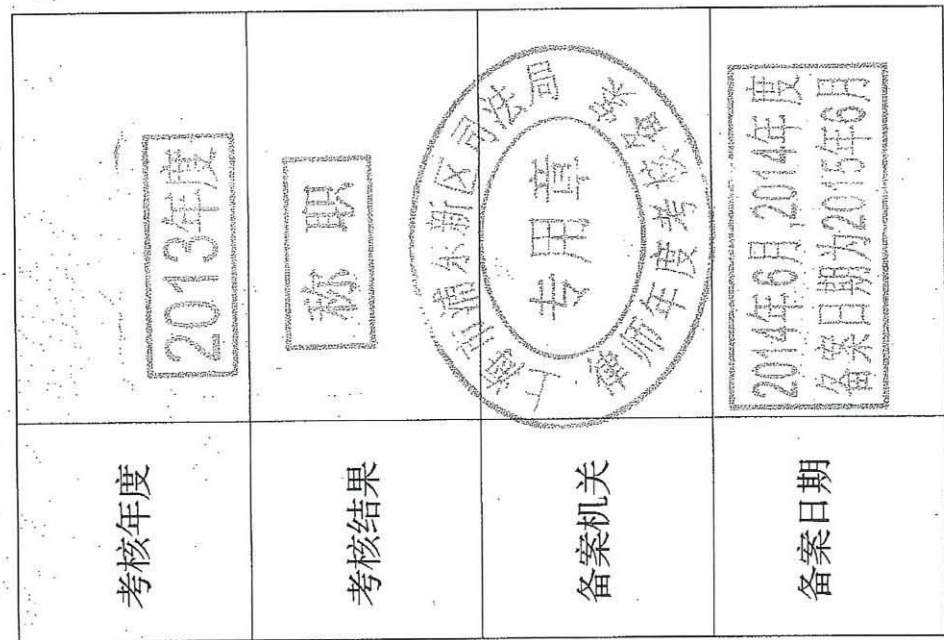 考核年度
2013年度
考核结果
称职
备案机关
上海市浦东新区司法局
专用章
律师年度考核备案
备案日期
2014年6月,2014年度
备案日期为2015年6月